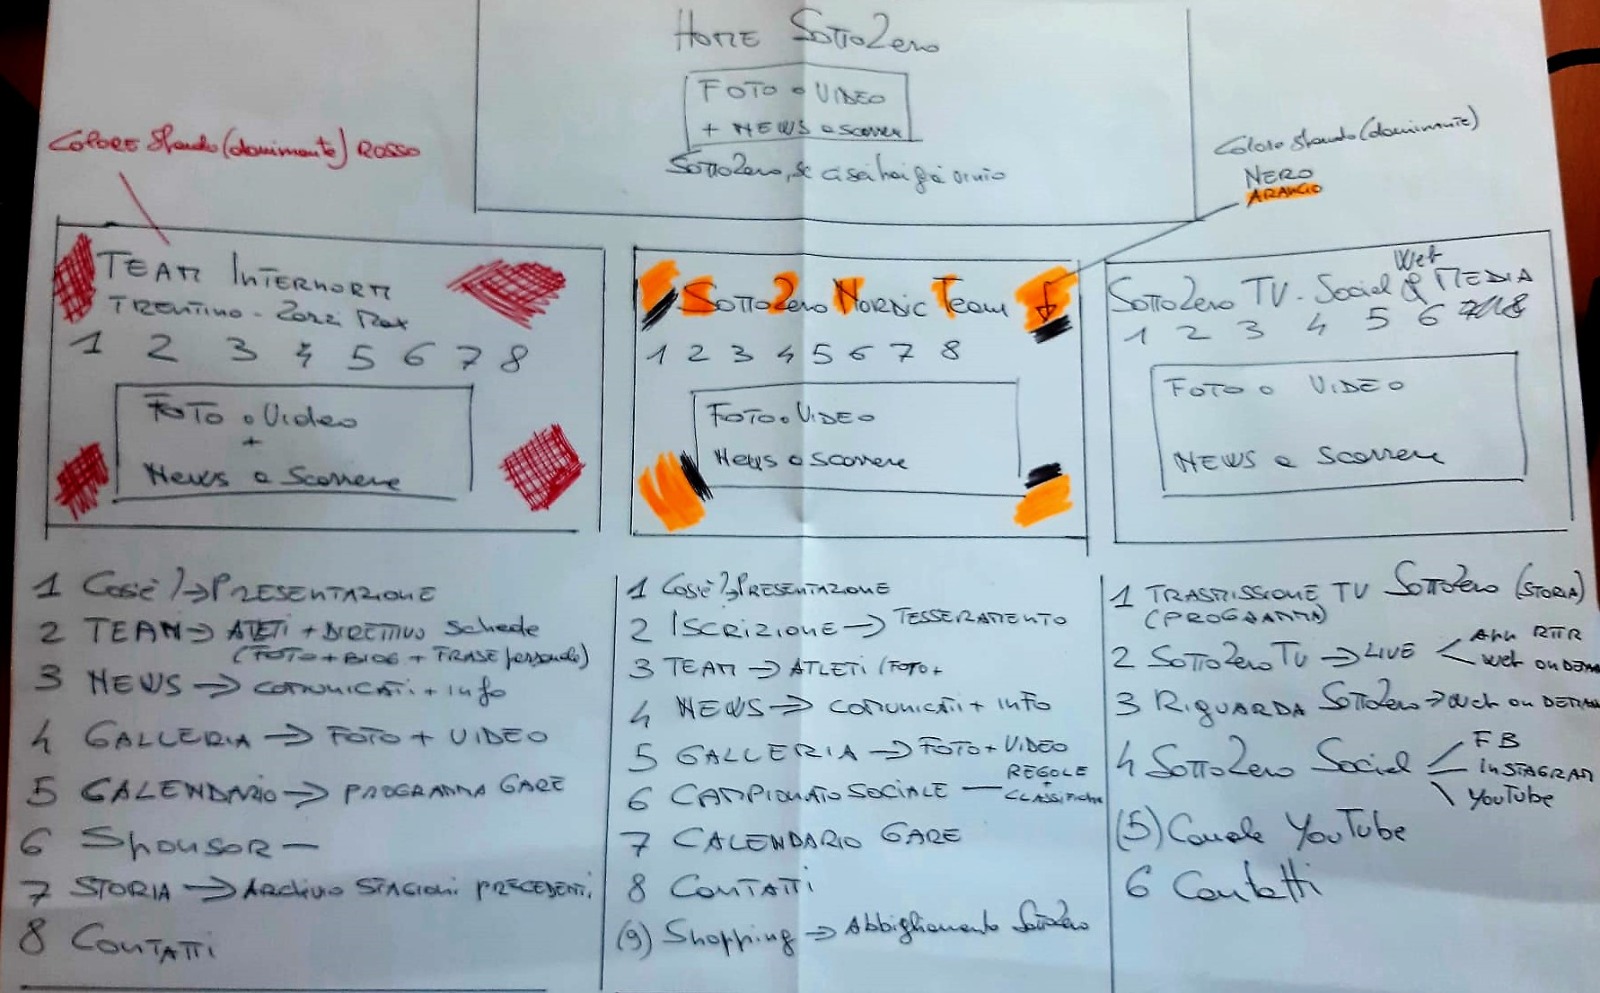 HOME SottoZero
FOTO o VIDEO
+ NEWS a scorrere
SottoZero, se ci sei hai già vinto
COLORE Sfondo (dominante) ROSSO
Colore sfondo (dominante)
NERO
ARANCIO
TEAM INTERNORM
TRENTINO -
1 2 3 4 5 6 7 8
FOTO o Video
+
News a Scorrere
SottoZero NORDIC Team
1 2 3 4 5 6 7 8
FOTO o VIDEO
News a scorrere
Web
SottoZero TV - Social & MEDIA
1 2 3 4 5 6
FOTO o VIDEO
NEWS a scorrere
1 Cos'è? → PRESENTAZIONE
2 TEAM → ATLETI + DIRETTIVO schede
(FOTO + BIOG + FRASE personale)
3 NEWS → COMUNICATI + info
4 GALLERIA → FOTO + VIDEO
5 CALENDARIO → PROGRAMMA GARE
6 Sponsor —
7 STORIA → Archivio STAGIONI PRECEDENTI
8 CONTATTI
1 Cos'è? → PRESENTAZIONE
2 ISCRIZIONE → TESSERAMENTO
3 TEAM → ATLETI (FOTO +
4 NEWS → COMUNICATI + info
5 GALLERIA → FOTO + VIDEO
6 CAMPIONATO SOCIALE — REGOLE
+
CLASSIFICHE
7 CALENDARIO GARE
8 CONTATTI
(9) Shopping → Abbigliamento SottoZero
1 TRASMISSIONE TV SottoZero (STORIA)
(PROGRAMMA)
2 SottoZero TV → LIVE
RTTR
web on DEMAN
3 RIGUARDA SottoZero → web on DEMAN
4 SottoZero Social
FB
INSTAGRAM
YouTube
(5) Canale YouTube
6 Contatti